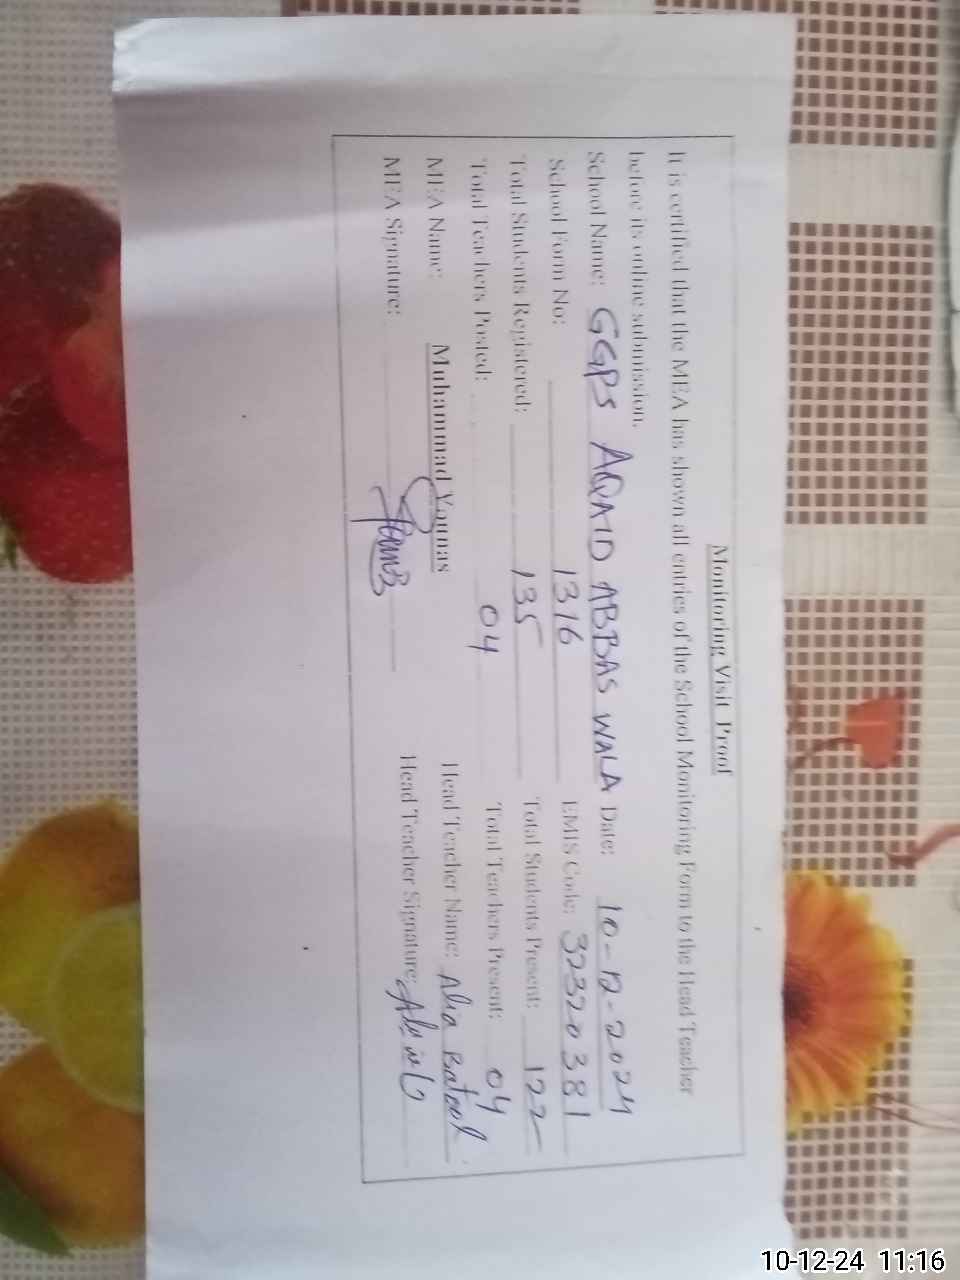 Monitoring Visit Proof
It is certified that the MEA has shown all entries of the School Monitoring Form to the Head Teacher
before its online submission.
School Name: GGPS AQAID ABBAS WALA Date: 10-12-2024
School Form No: 1316 EMIS Code: 32320381
Total Students Registered: 135 Total Students Present: 122
Total Teachers Posted: 04 Total Teachers Present: 04
MEA Name: Muhammad Younas Head Teacher Name: Alia Batool
MEA Signature: Head Teacher Signature:
10-12-24 11:16